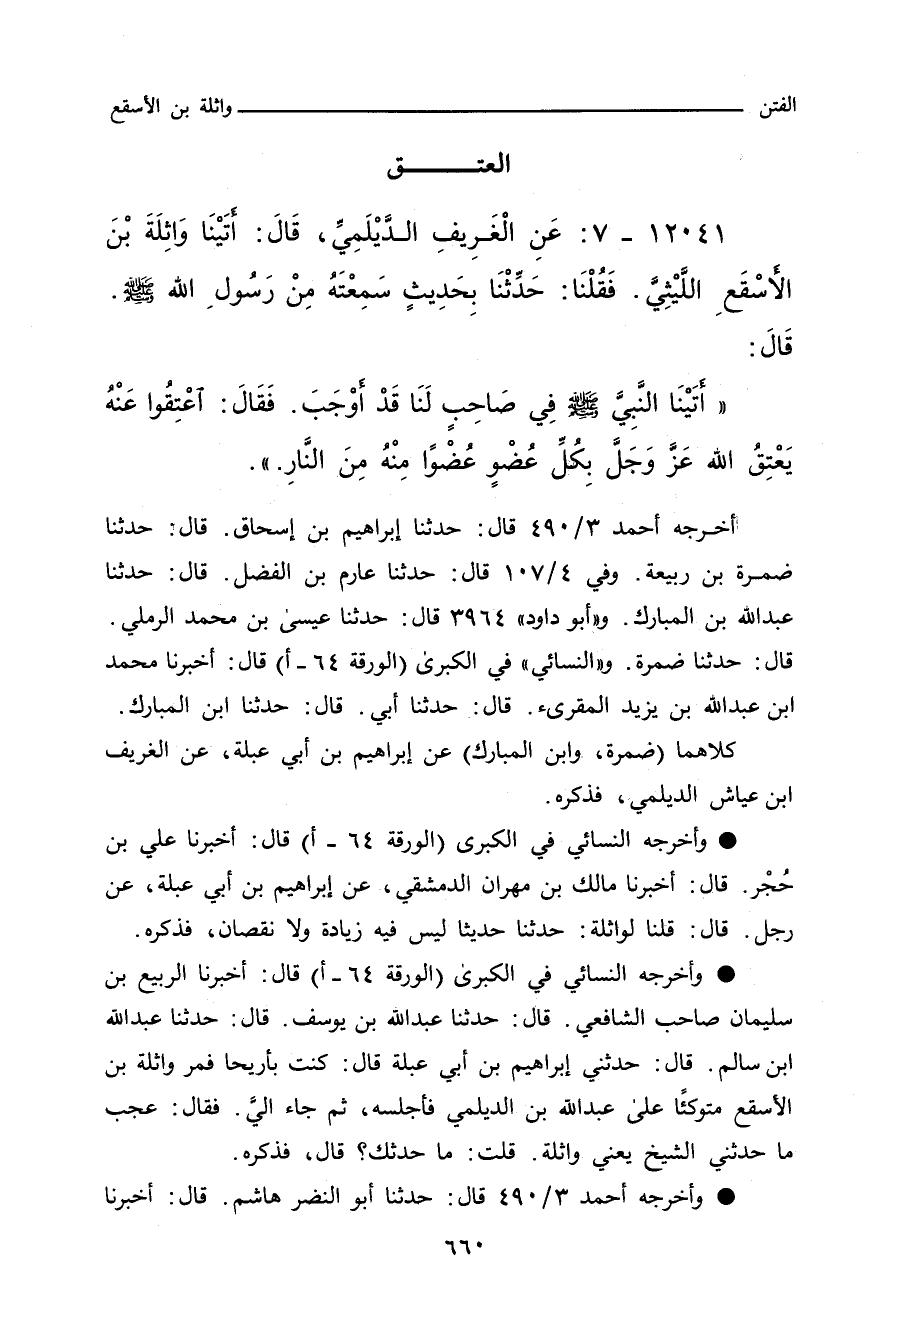 الفتن ــــــــــــــــــــــــ واثلة بن الأسقع
العتـــــــق
١٢٠٤١ - ٧: عَنِ الْغَرِيفِ الـدَّيْلَمِيِّ، قَالَ: أَتَيْنَا وَاثِلَةَ بْنَ
الأَسْقَعِ اللَّيْثِيَّ. فَقُلْنَا: حَدِّثْنَا بِحَدِيثٍ سَمِعْتَهُ مِنْ رَسُولِ الله ﷺ.
قَالَ:
« أَتَيْنَا النَّبِيَّ ﷺ فِي صَاحِبٍ لَنَا قَدْ أَوْجَبَ. فَقَالَ: اَعْتِقُوا عَنْهُ
يَعْتِقُ الله عَزَّ وَجَلَّ بِكُلِّ عُضْوٍ عُضْوًا مِنْهُ مِنَ النَّارِ.».
أخـرجه أحمد ٤٩٠/٣ قال: حدثنا إبراهيم بن إسحاق. قال: حدثنا
ضمـرة بن ربيعة. وفي ١٠٧/٤ قال: حدثنا عارم بن الفضل. قال: حدثنا
عبدالله بن المبارك. و«أبو داود» ٣٩٦٤ قال: حدثنا عيسىٰ بن محمد الرملي.
قال: حدثنا ضمرة. و«النسائي» في الكبرىٰ (الورقة ٦٤ - أ) قال: أخبرنا محمد
ابن عبدالله بن يزيد المقرىء. قال: حدثنا أبي. قال: حدثنا ابن المبارك.
كلاهما (ضمرة، وابن المبارك) عن إبراهيم بن أبي عبلة، عن الغريف
ابن عياش الديلمي، فذكره.
● وأخرجه النسائي في الكبرى (الورقة ٦٤ - أ) قال: أخبرنا علي بن
حُجْر. قال: أخبرنا مالك بن مهران الدمشقي، عن إبراهيم بن أبي عبلة، عن
رجل. قال: قلنا لواثلة: حدثنا حديثا ليس فيه زيادة ولا نقصان، فذكره.
● وأخرجه النسائي في الكبرىٰ (الورقة ٦٤ - أ) قال: أخبرنا الربيع بن
سليمان صاحب الشافعي. قال: حدثنا عبدالله بن يوسف. قال: حدثنا عبدالله
ابن سالم. قال: حدثني إبراهيم بن أبي عبلة قال: كنت بأريحا فمر واثلة بن
الأسقع متوكئًا علىٰ عبدالله بن الديلمي فأجلسه، ثم جاء اليَّ. فقال: عجب
ما حدثني الشيخ يعني واثلة. قلت: ما حدثك؟ قال، فذكره.
● وأخرجه أحمد ٤٩٠/٣ قال: حدثنا أبو النضر هاشم. قال: أخبرنا
٦٦٠